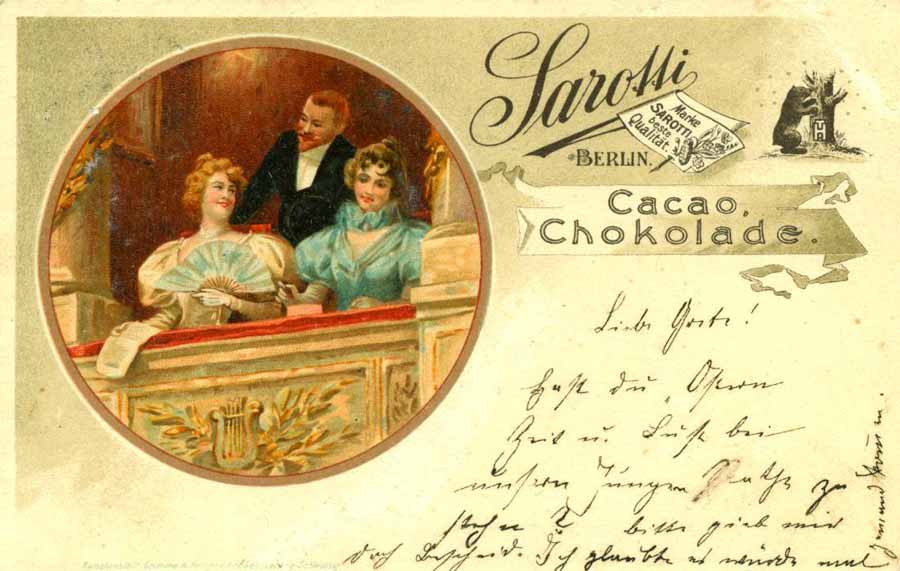 Sarotti
Marke
SAROTTI
beste
Qualität.
BERLIN.
Cacao,
Chokolade.
Liebe Grete!
Hast du Ostern
Zeit u. Lust bei
unserm Jungen Pathe zu
stehen? bitte gieb mir
doch Bescheid. Ich glaubte es würde mal
jemand